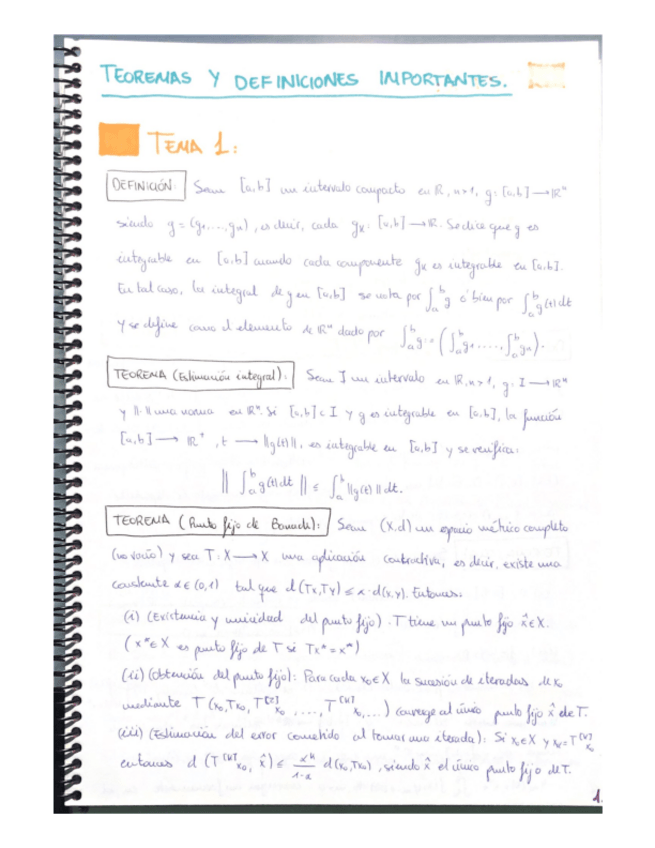 TEOREMAS Y DEFINICIONES IMPORTANTES.
TEMA 1:
DEFINICIÓN: Sean [a,b] un intervalo compacto en ℝ, n>1, g: [a,b] → ℝⁿ
siendo g = (g₁,...,gₙ), es decir, cada gₖ: [a,b] → ℝ. Se dice que g es
integrable en [a,b] cuando cada componente gₖ es integrable en [a,b].
En tal caso, la integral de g en [a,b] se nota por ∫ₐᵇ g ó bien por ∫ₐᵇ g(t) dt
y se define como el elemento de ℝⁿ dado por ∫ₐᵇ g = (∫ₐᵇ g₁, ..., ∫ₐᵇ gₙ).
TEOREMA (Estimación integral): Sean I un intervalo en ℝ, n>1, g: I → ℝⁿ
y ‖·‖ una norma en ℝⁿ. Si [a,b] ⊂ I y g es integrable en [a,b], la función
[a,b] → ℝ⁺, t → ‖g(t)‖, es integrable en [a,b] y se verifica:
‖ ∫ₐᵇ g(t) dt ‖ ≤ ∫ₐᵇ ‖g(t)‖ dt.
TEOREMA (Punto fijo de Banach): Sean (X,d) un espacio métrico completo
(no vacío) y sea T: X → X una aplicación contractiva, es decir, existe una
constante α ∈ (0,1) tal que d(Tx,Ty) ≤ α·d(x,y). Entonces:
(i) (Existencia y unicidad del punto fijo). T tiene un punto fijo x̂ ∈ X.
(x* ∈ X es punto fijo de T si Tx* = x*)
(ii) (Obtención del punto fijo): Para cada x₀ ∈ X la sucesión de iteradas de x₀
mediante T (x₀, Tx₀, T^[2] x₀, ..., T^[n] x₀, ...) converge al único punto fijo x̂ de T.
(iii) (Estimación del error cometido al tomar una iterada): Si x₀ ∈ X y xₙ = T^[n] x₀
entonces d(T^[n] x₀, x̂) ≤ αⁿ/(1-α) d(x₀,Tx₀), siendo x̂ el único punto fijo de T.
1.